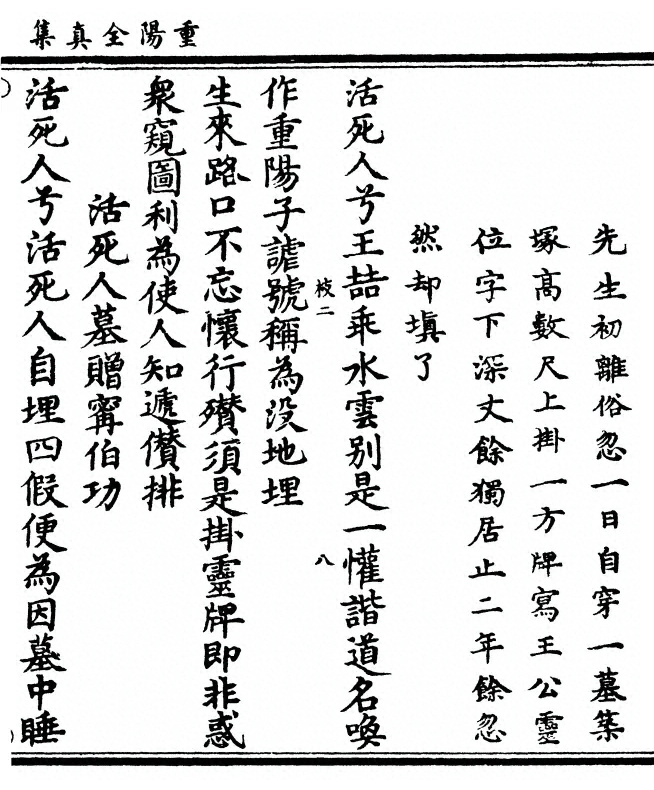 重陽全真集
先生初離俗忽一日自穿一墓築
塚高數尺上掛一方牌寫王公靈
位字下深丈餘獨居止二年餘忽
然却填了
活死人兮王喆乖水雲别是一懽諧道名喚
作重陽子謔號稱為没地埋
枝二
八
生來路口不忘懷行殯須是掛靈牌即非惑
衆窺圖利為使人知遞儹排
活死人墓贈寗伯功
活死人兮活死人自埋四假便為因墓中睡